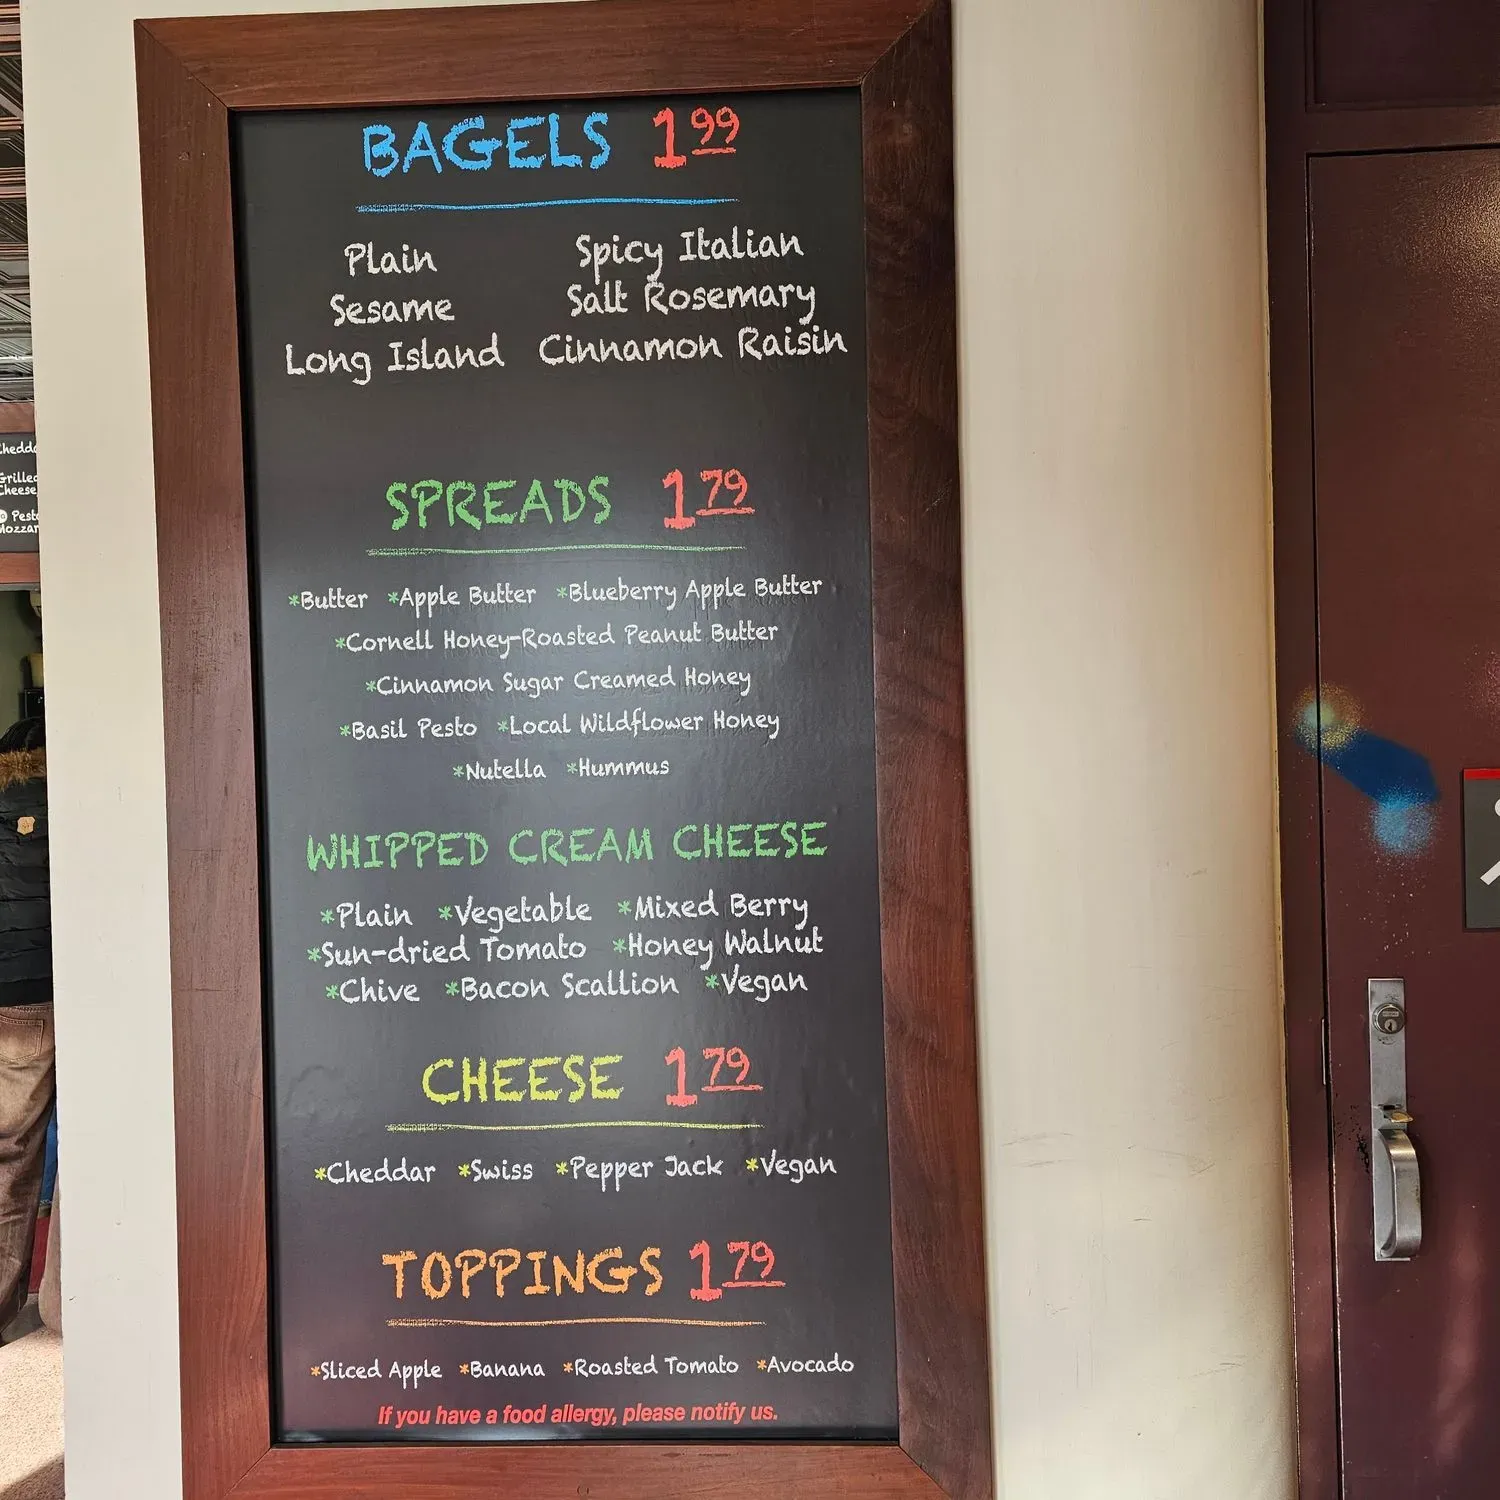 BAGELS 1.99
Plain Spicy Italian
Sesame Salt Rosemary
Long Island Cinnamon Raisin
SPREADS 1.79
*Butter *Apple Butter *Blueberry Apple Butter
*Cornell Honey-Roasted Peanut Butter
*Cinnamon Sugar Creamed Honey
*Basil Pesto *Local Wildflower Honey
*Nutella *Hummus
WHIPPED CREAM CHEESE
*Plain *Vegetable *Mixed Berry
*Sun-dried Tomato *Honey Walnut
*Chive *Bacon Scallion *Vegan
CHEESE 1.79
*Cheddar *Swiss *Pepper Jack *Vegan
TOPPINGS 1.79
*Sliced Apple *Banana *Roasted Tomato *Avocado
If you have a food allergy, please notify us.
Cheese